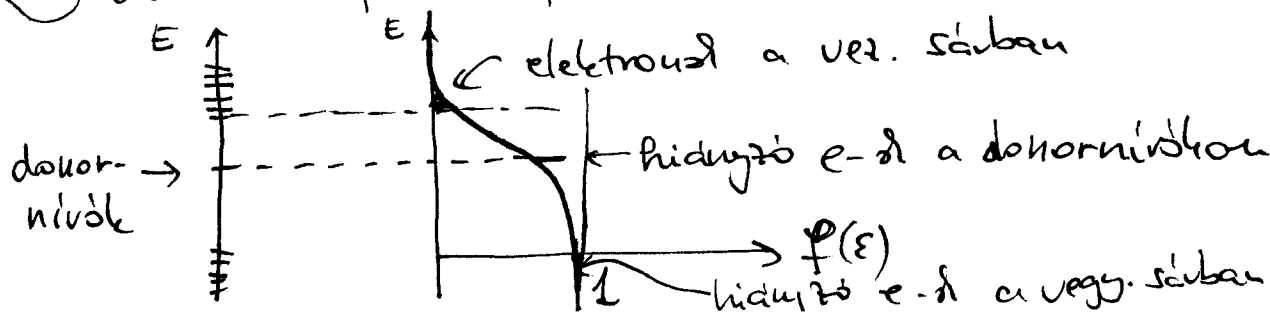 E
E
elektronok a vez. sávban
donor-
nívók
→
hiányzó e-k a donornívókon
f(ε)
1
hiányzó e-k a vegy. sávban